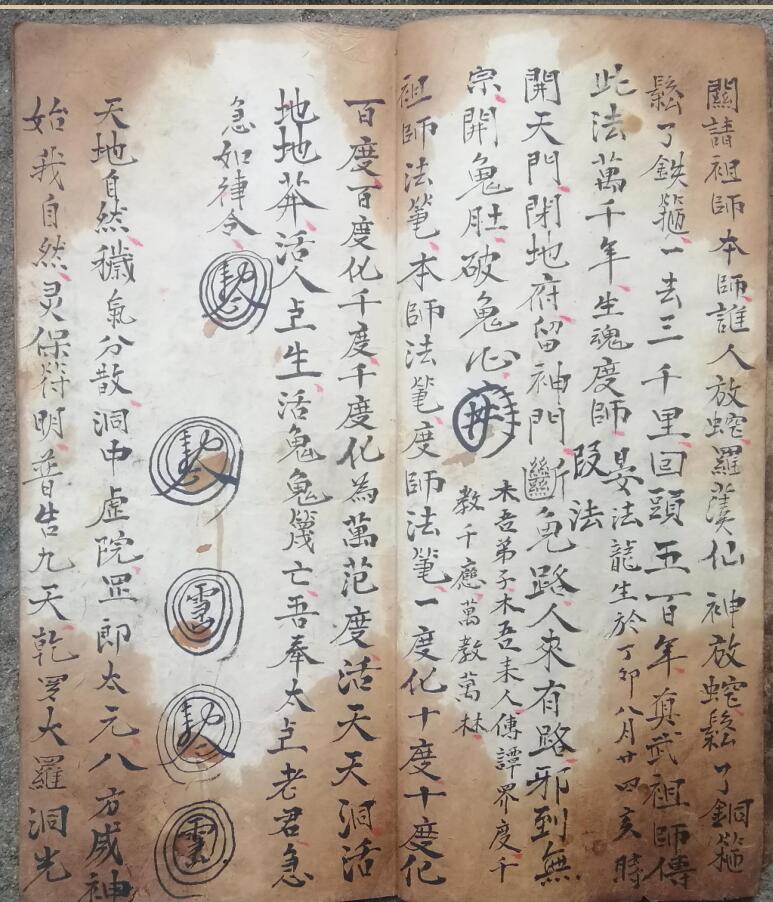 關請祖師本師誰人放蛇羅漢仙神放蛇鬆了銅箍
鬆了鉄箍一去三千里回頭五百年真武祖師傳
此法萬千年生魂度師晏法龍生於丁卯八月廿四亥時
段法
開天門閉地府留神門斷鬼路人來有路邪到無
宗開鬼肚破鬼心
木吾弟子木吾未人傳譚界度千
教千應萬教萬林
祖師法篭本師法篭度師法篭一度化十度十度化
百度百度化千度千度化為萬范度活天天洞活
地地莽活人上生活鬼鬼篾亡吾奉太上老君急
急如律令
天地自然穢氣分散洞中虛院罡即太元八方咸神
始我自然灵保符明普告九天乾罗大羅洞光